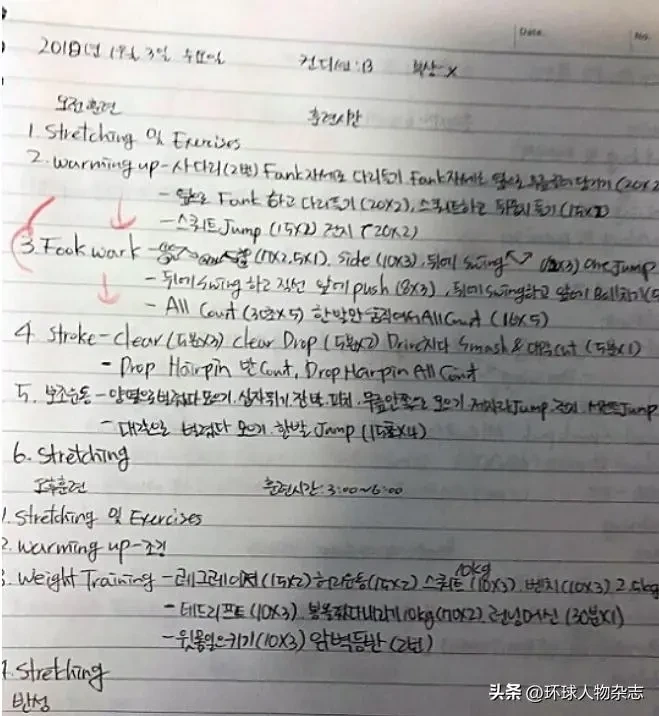 Date No.
2018년 1월 3일 수요일 컨디션:B 부상:X
오전훈련 훈련시간
1. Stretching 및 Exercises
2. warming up-사다리(2번) Fank자세로 다리들기 Fank자세로 (20x2
- 옆으로 Fank 하고 다리들기(20x2), 스쿼트하고 뒤꿈치들기(15x2)
- 스쿼트Jump (15x2) 전지 (20x2)
3. Fook work - (10x2, 5x1). side (10x3), 뒤에 swing (10x3) one Jump
- 뒤에 swing 하고 직선 앞에 push (8x3), 뒤에 swing하고 앞에 Ball치기(5
- All Court (30초x5) 한발만 움직여서 All Court (16x5)
4. Stroke-clear (5분x3) clear Drop (5분x2) Drive치다 Smash & 대각cut (5분x1)
- Drop Hairpin 반Court, Drop Hairpin All Court
5. 보조운동 - 양옆으로 벌렸다 모으기. 십자뛰기. 무릎안쪽으로 모으기. 제자리Jump Jump
- 대각으로 벌렸다 모으기. 한발 Jump (15초x4)
6. Stretching
오후훈련 훈련시간:3:00~6:00
1. Stretching 및 Exercises
2. warming up-조깅
3. Weight Training - 레그레이져(15x2) 허리운동(15x2) 스쿼트 10kg (10x3). 벤치(10x3) 2.5kg
- 데드리프트(10x3). 봉올렸다내리기 10kg (70x2) 런닝머신 (30분x1)
- 윗몸일으키기 (10x3) 암벽등반 (2번)
7. Stretching
반성
头条 @环球人物杂志